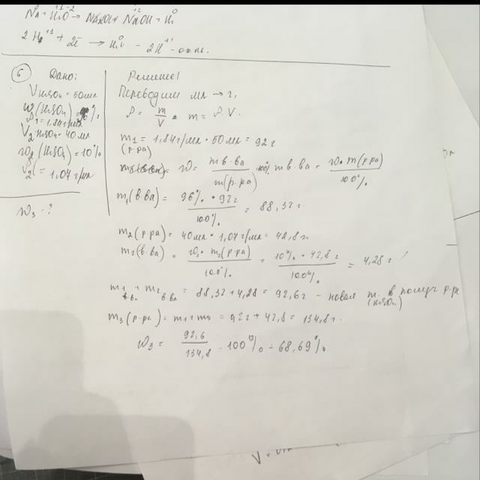 2H⁺¹ + 2ē → H₂⁰
⑤ Дано:
V H₂SO₄ = 50мл
ρ₁ = 1,84г/мл
V₂ H₂SO₄ = 40мл
ω₂ (H₂SO₄) = 10%
ρ₂ = 1,07г/мл
ω₃ - ?
Решение:
Переводим мл → г.
ρ = m/V ⇒ m = ρ·V.
m₁ = 1,84г/мл · 50мл = 92г
(р-ра)
m(в-ва) = ω = m в-ва / m(р-ра) m в-ва = ω·m(р-ра) / 100%
m₁(в-ва) = 96% · 92г / 100% = 88,32г
m₂(р-ра) = 40мл · 1,07г/мл = 42,8г
m₂(в-ва) = ω₂·m₂(р-ра) / 100% = 10% · 42,8г / 100% = 4,28г
m₁ в-ва + m₂ в-ва = 88,32 + 4,28 = 92,6г - новая m в р-ре (H₂SO₄)
m₃(р-ра) = m₁+m₂ = 92г + 42,8 = 134,8г.
ω₃ = 92,6 / 134,8 · 100% = 68,69%